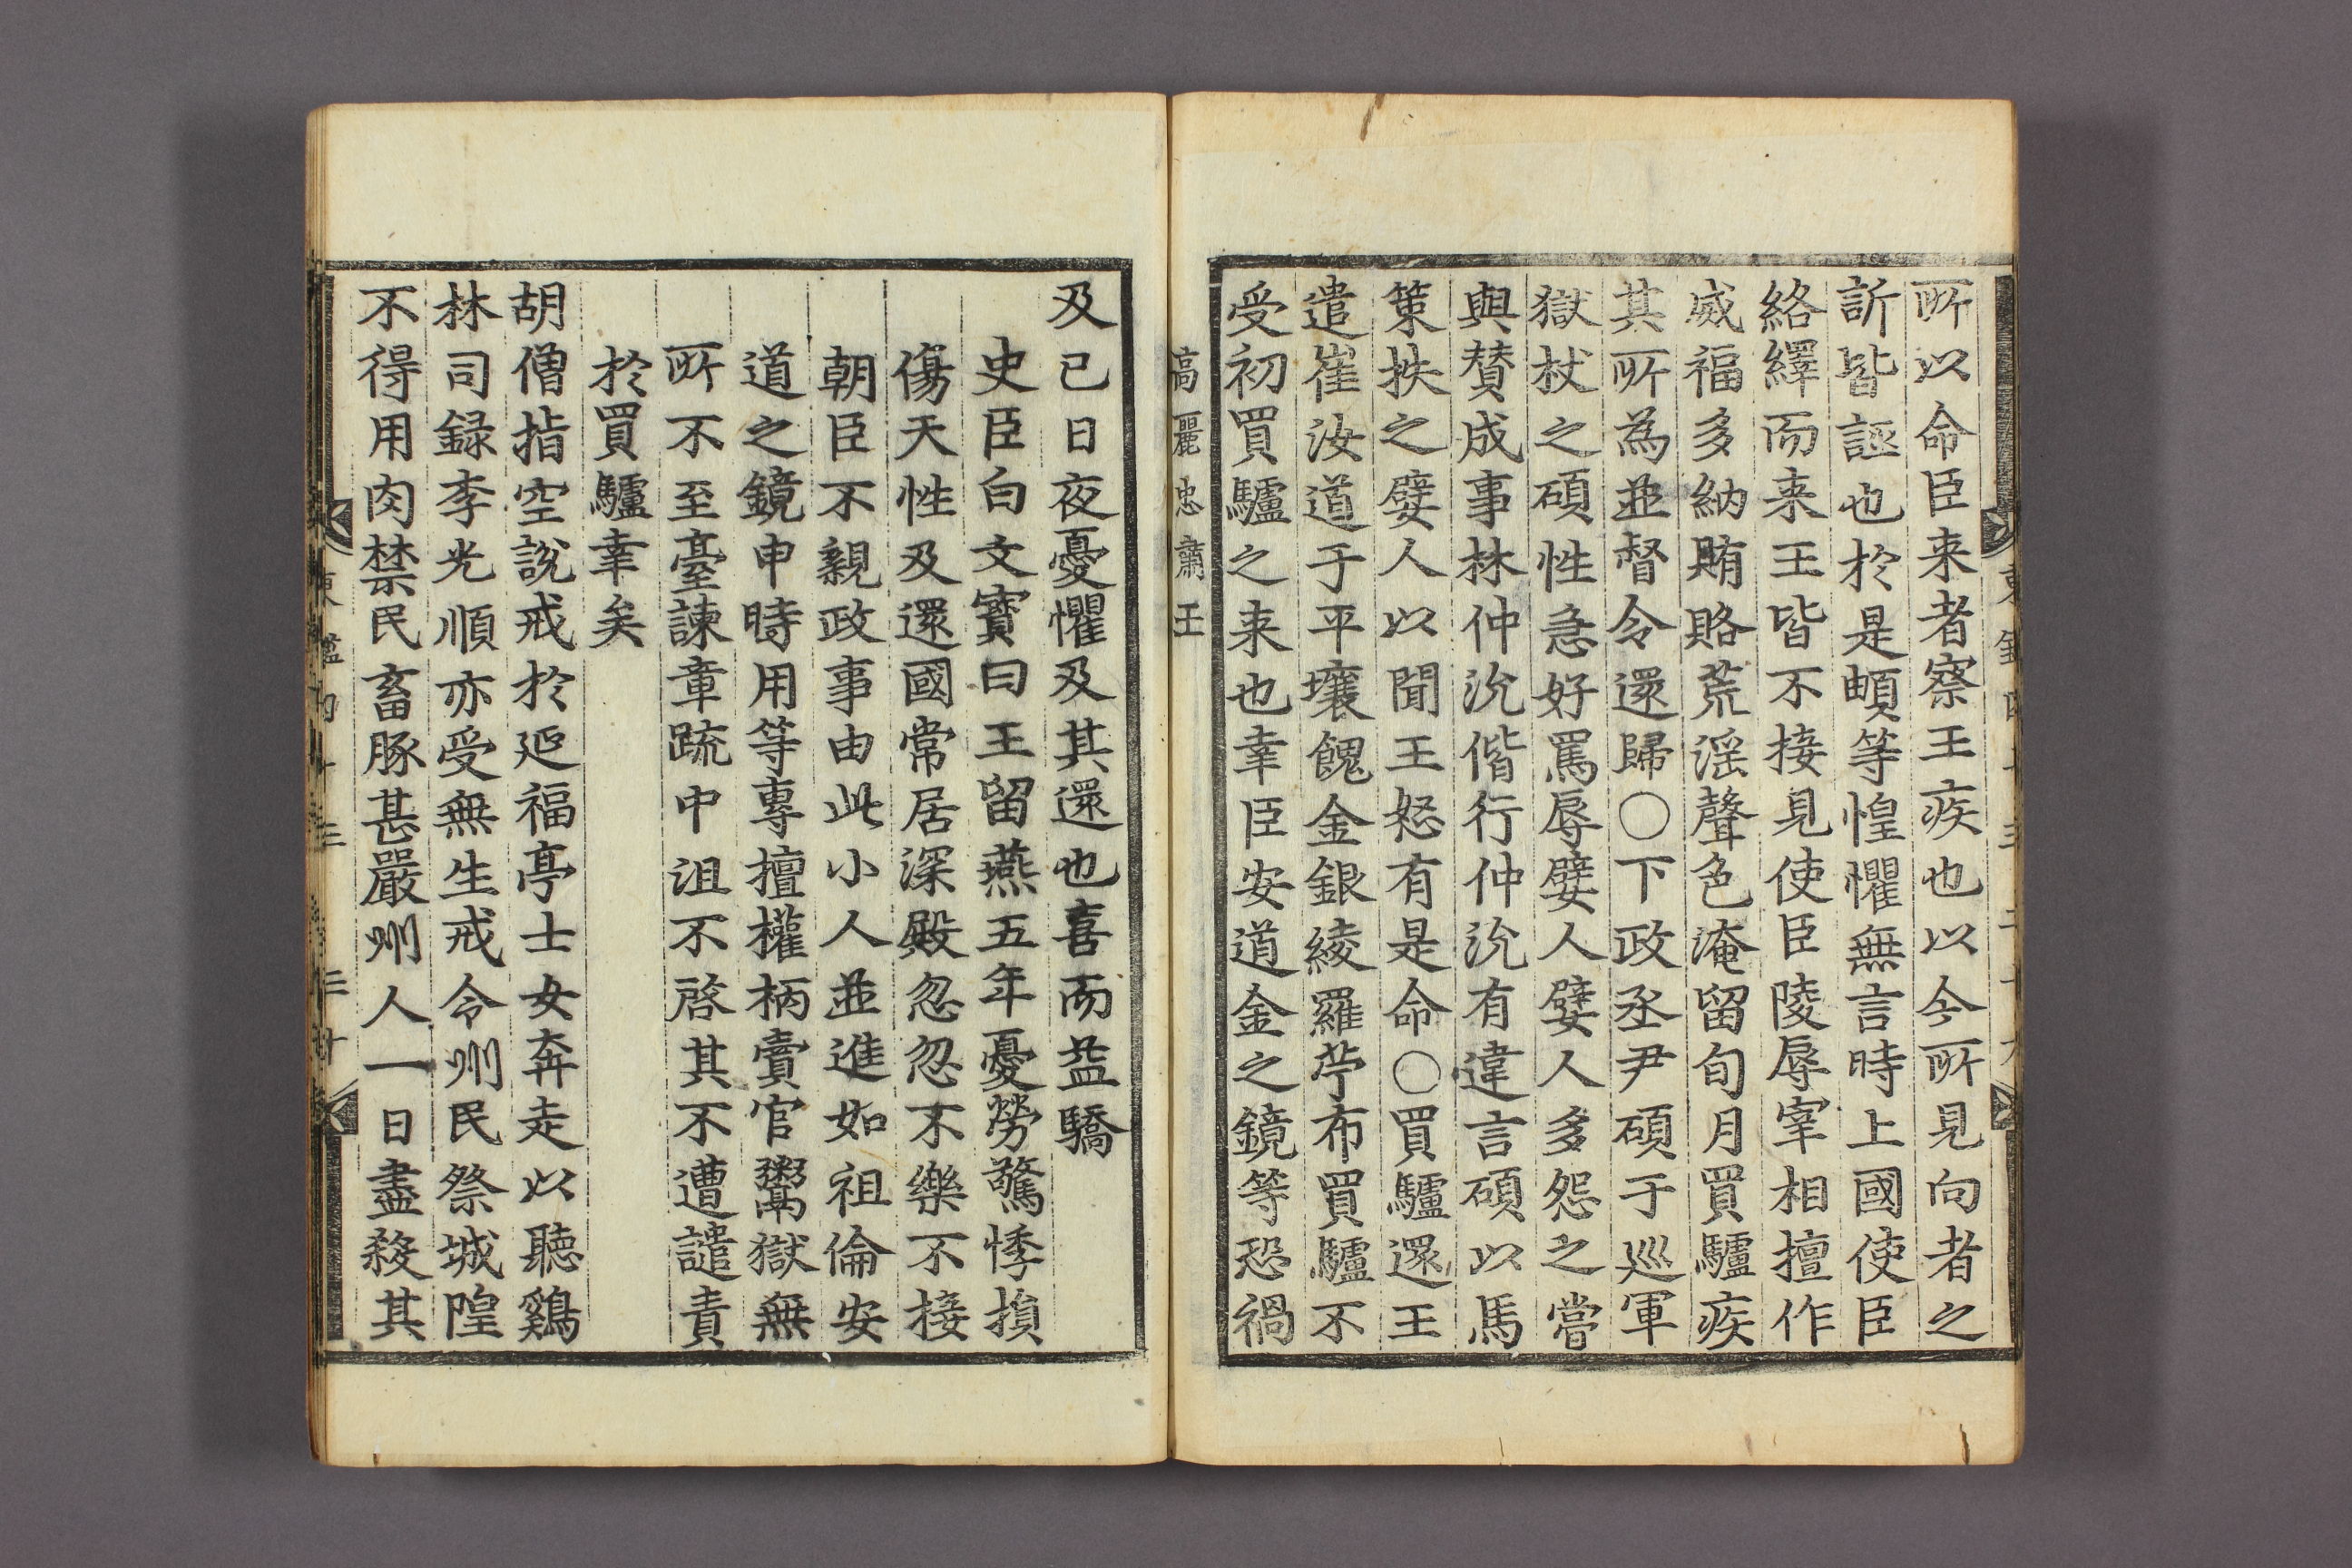 所以命臣来者察王疾也以今所見向者之
訴皆誣也於是頔等惶懼無言時上國使臣
絡繹而来王皆不接見使臣陵辱宰相擅作
威福多納賄賂荒淫聲色淹留旬月買驢疾
其所為並督令還歸〇下政丞尹碩于巡軍
獄杖之碩性急好罵辱嬖人嬖人多怨之嘗
與賛成事林仲沇偕行仲沇有違言碩以馬
策抶之嬖人以聞王怒有是命〇買驢還王
遣崔汝道于平壤餽金銀綾羅苧布買驢不
受初買驢之来也幸臣安道金之鏡等恐禍
高麗忠肅王
及已日夜憂懼及其還也喜而益驕
史臣白文寳曰王留燕五年憂勞驚悸損
傷天性及還國常居深殿忽忽不樂不接
朝臣不親政事由此小人並進如祖倫安
道之鏡申時用等專擅權柄賣官鬻獄無
所不至臺諫章疏中沮不啓其不遭譴責
於買驢幸矣
胡僧指空說戒於延福亭士女奔走以聽鷄
林司録李光順亦受無生戒令州民祭城隍
不得用肉禁民畜豚甚嚴州人一日盡殺其